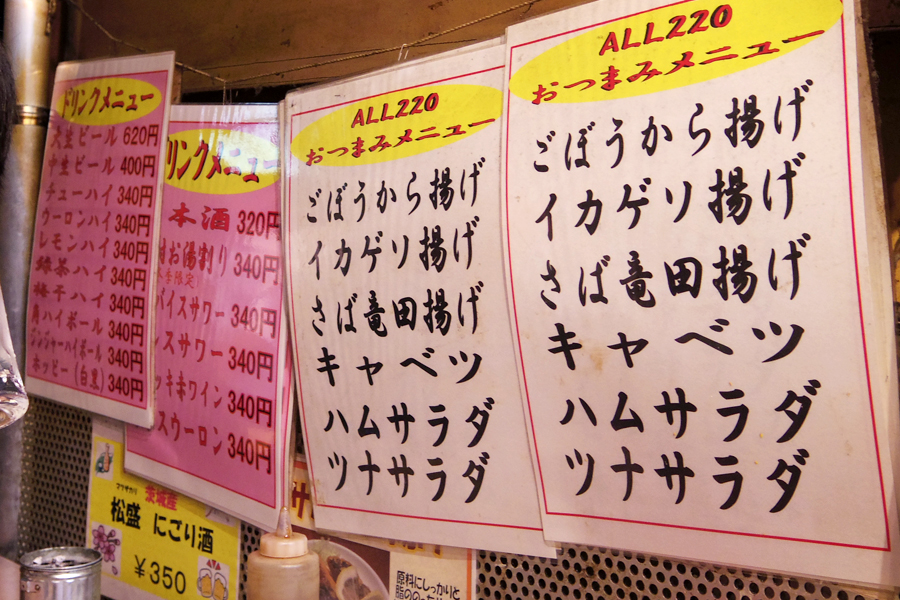 ドリンクメニュー
大生ビール 620円
中生ビール 400円
チューハイ 340円
ウーロンハイ 340円
レモンハイ 340円
緑茶ハイ 340円
梅干ハイ 340円
角ハイボール 340円
ジンジャーハイボール 340円
ホッピー(白黒) 340円
リンクメニュー
本酒 320円
お湯割り 340円
バイスサワー 340円
スサワー 340円
ッキ赤ワイン 340円
スウーロン 340円
ALL220
おつまみメニュー
ごぼうから揚げ
イカゲソ揚げ
さば竜田揚げ
キャベツ
ハムサラダ
ツナサラダ
ALL220
おつまみメニュー
ごぼうから揚げ
イカゲソ揚げ
さば竜田揚げ
キャベツ
ハムサラダ
ツナサラダ
茨城産
マツザカリ
松盛 にごり酒
¥350
原料にしっかりと